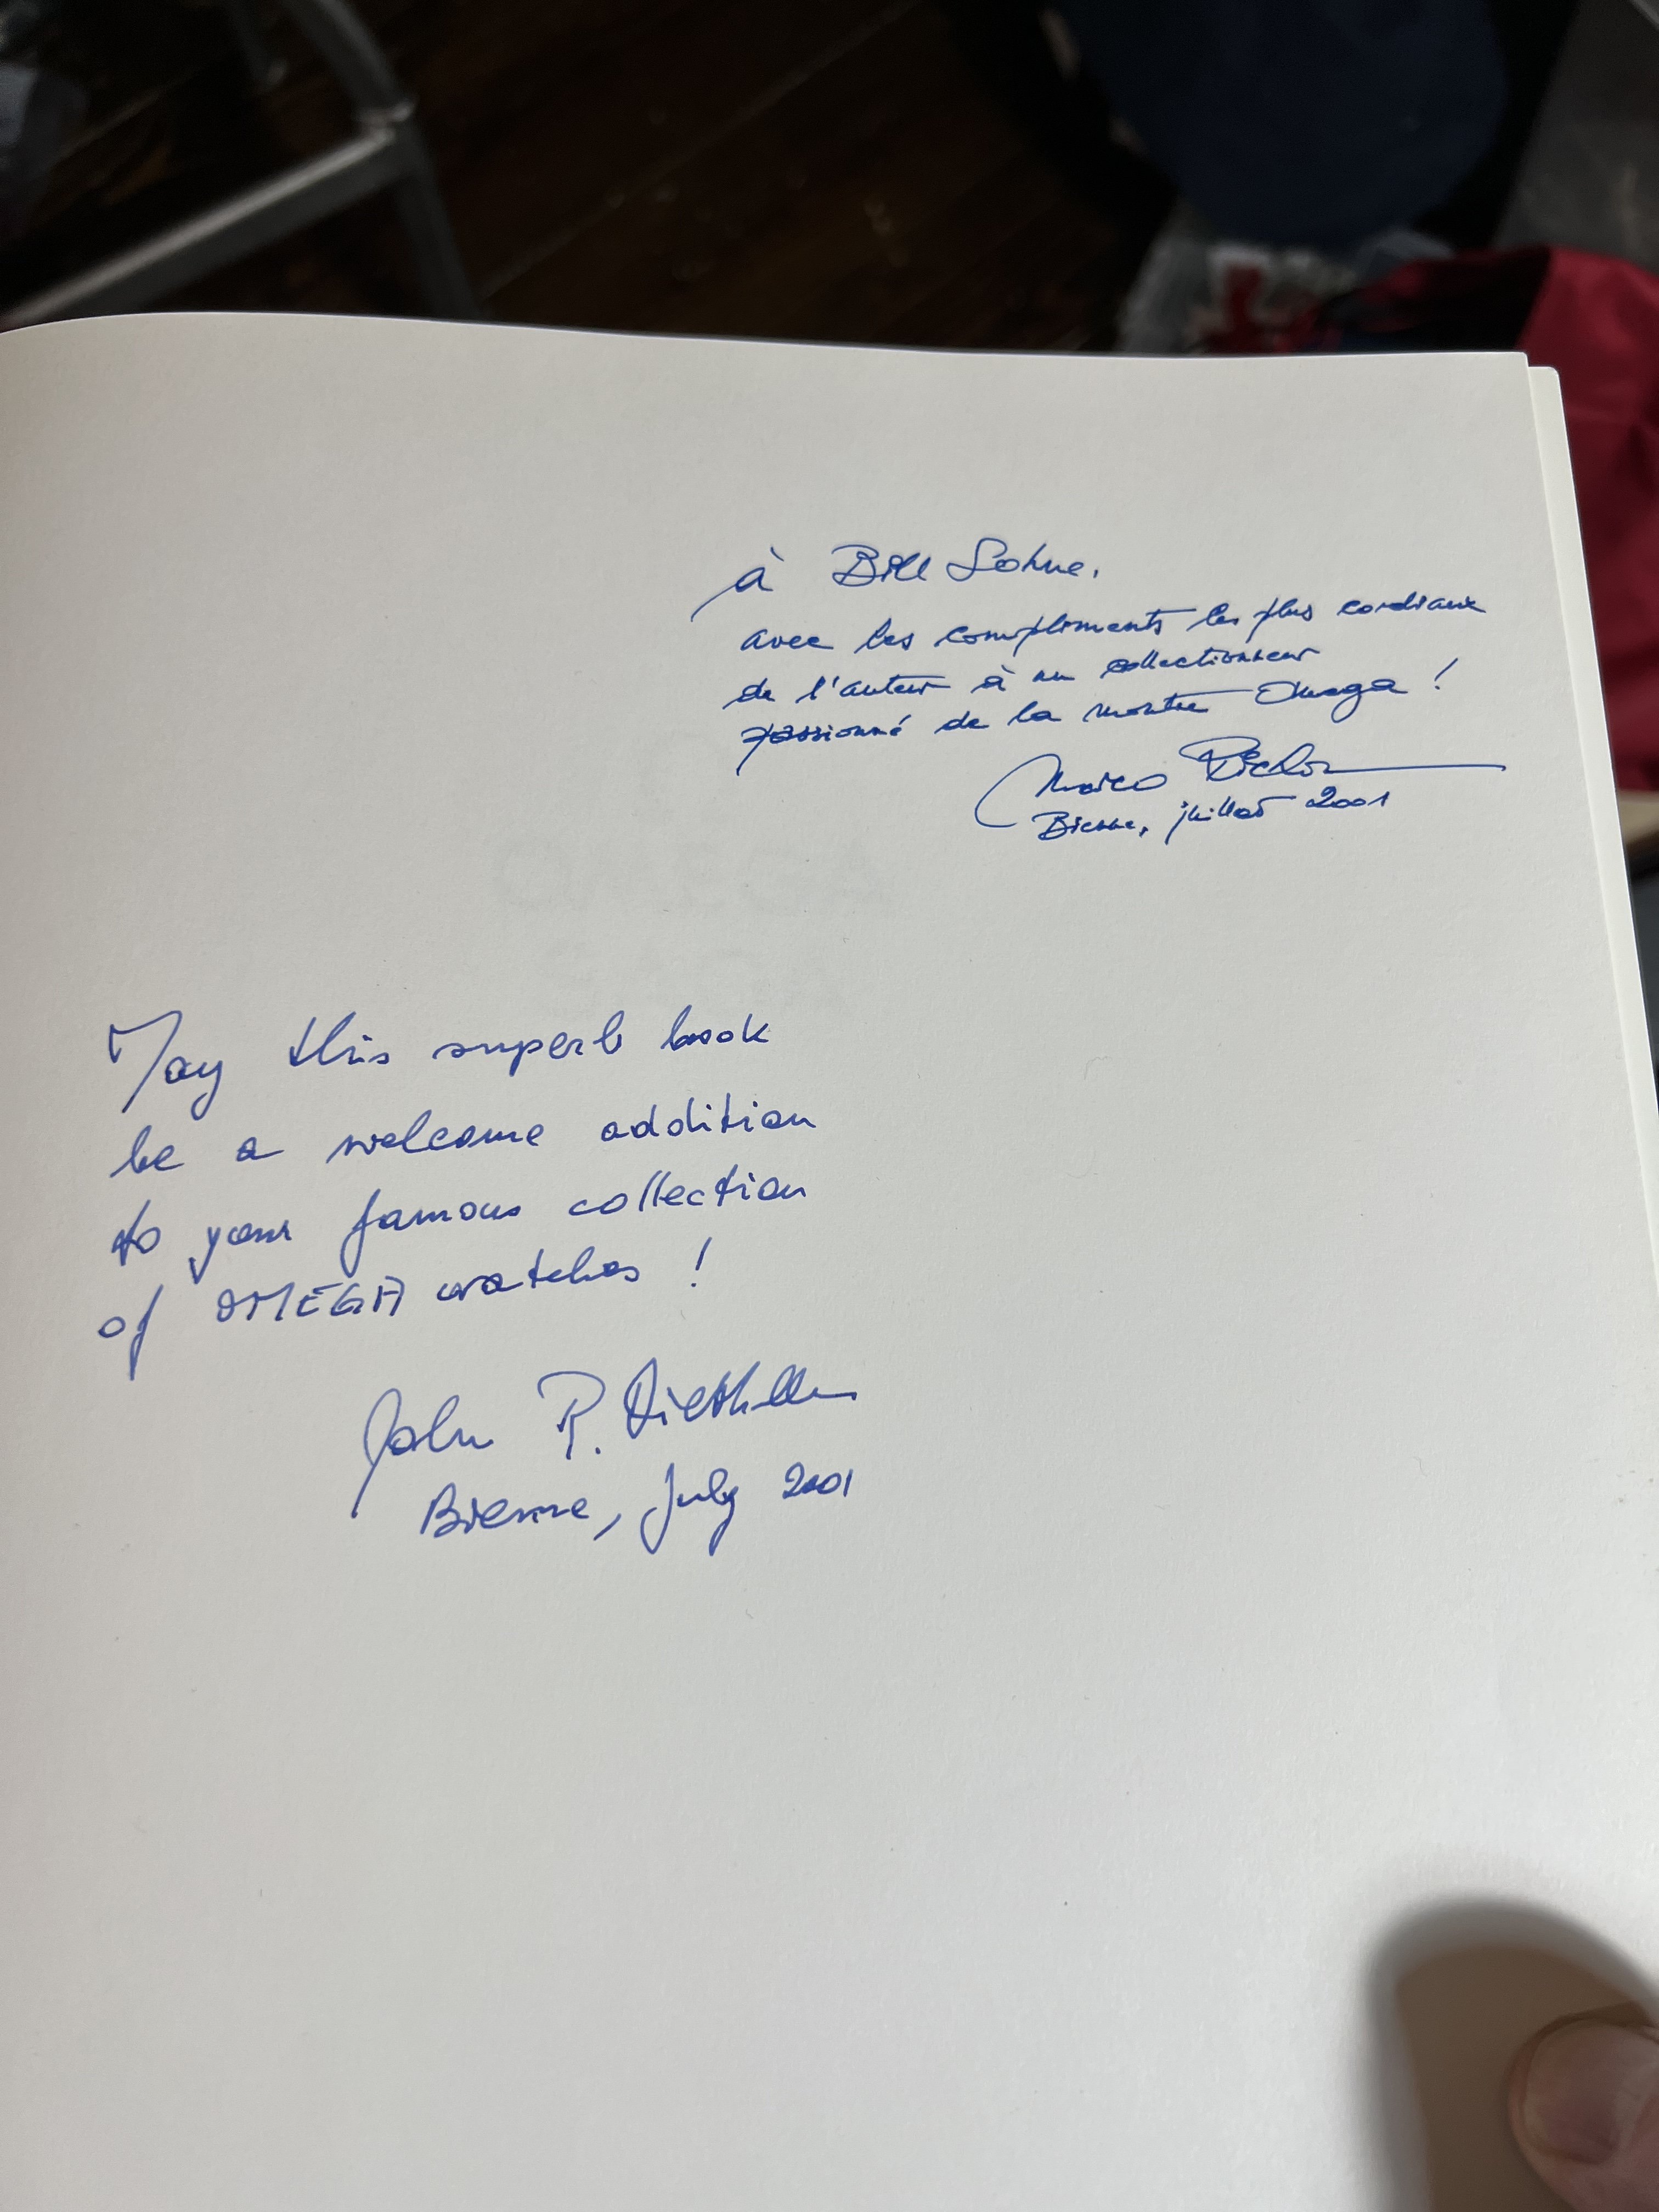 à Bill Sohne,
avec les compliments les plus cordiaux
de l'auteur à un collectionneur
passionné de la montre Omega !
Marco Richon
Bienne, juillet 2001
May this superb book
be a welcome addition
to your famous collection
of OMEGA watches !
John R. Diethelm
Bienne, July 2001